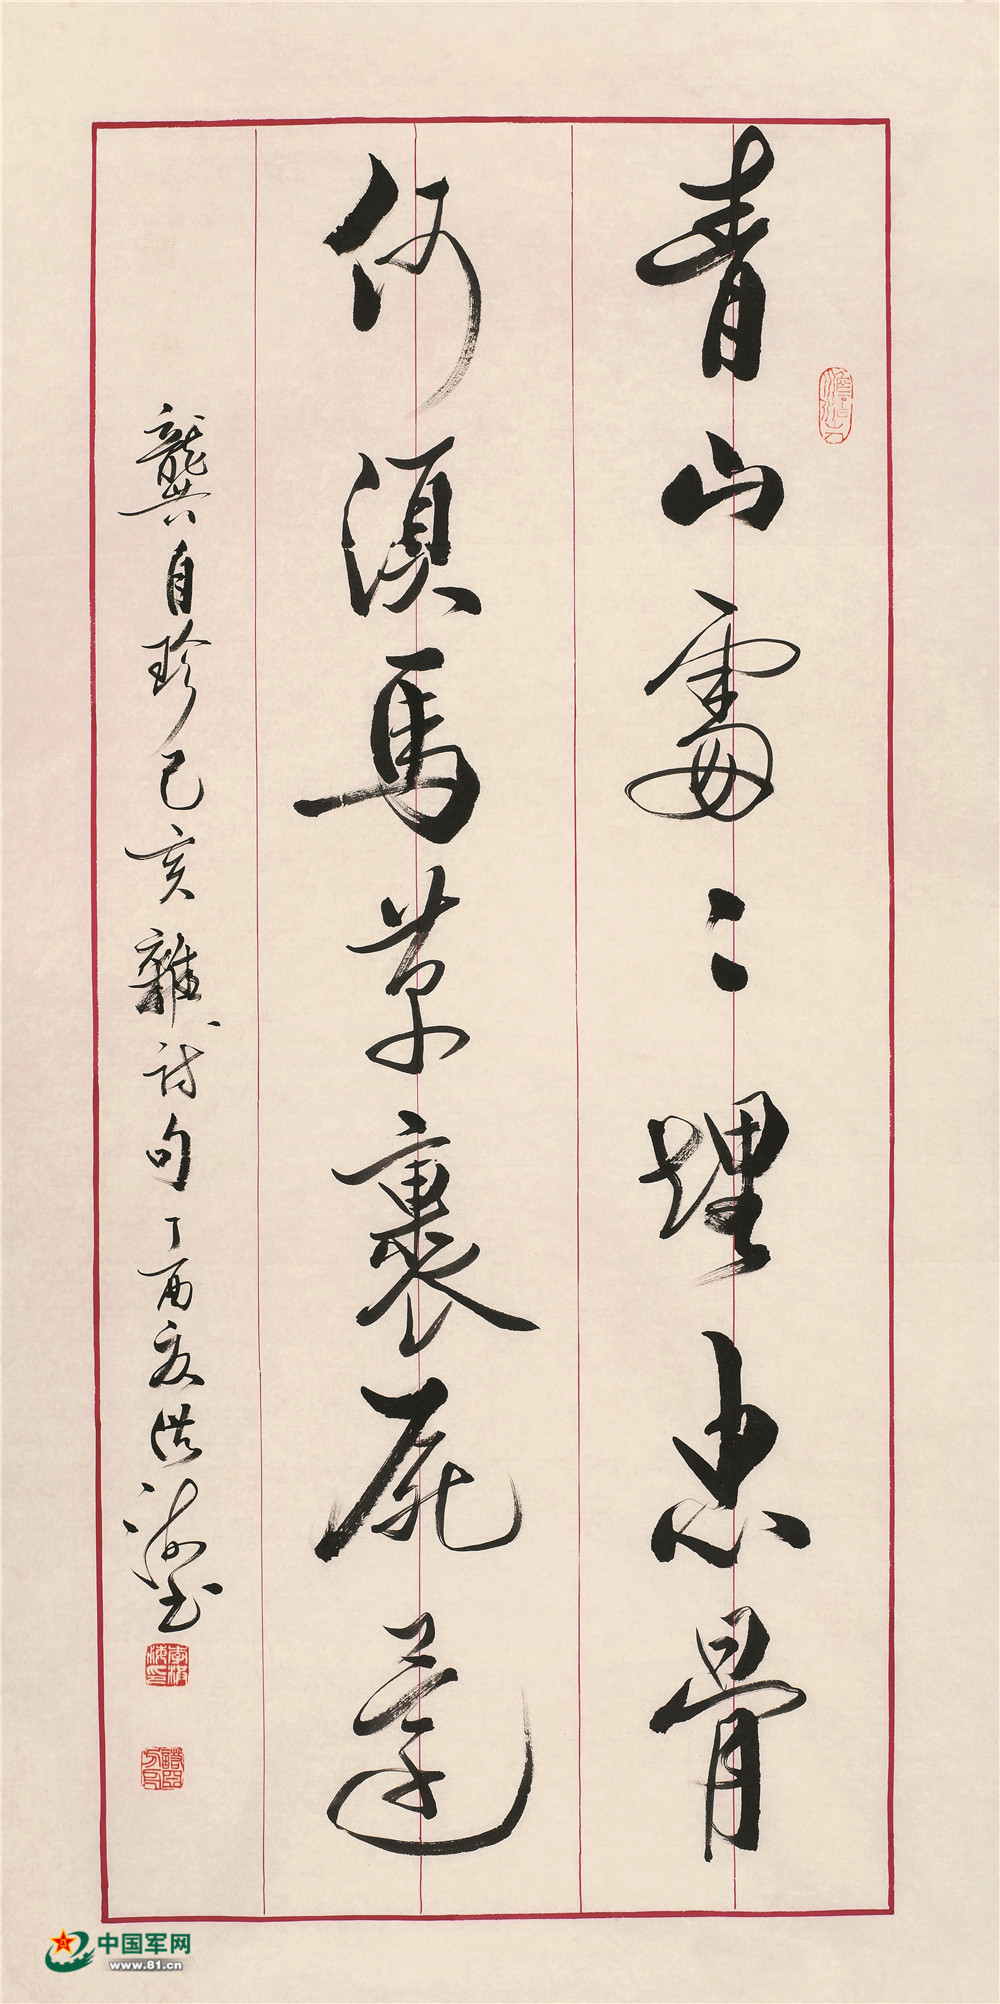 青山處〻埋忠骨
何須馬革裹屍還
龔自珍己亥雜詩句丁酉夏洪海書
李洪海印
中国军网
www.81.cn